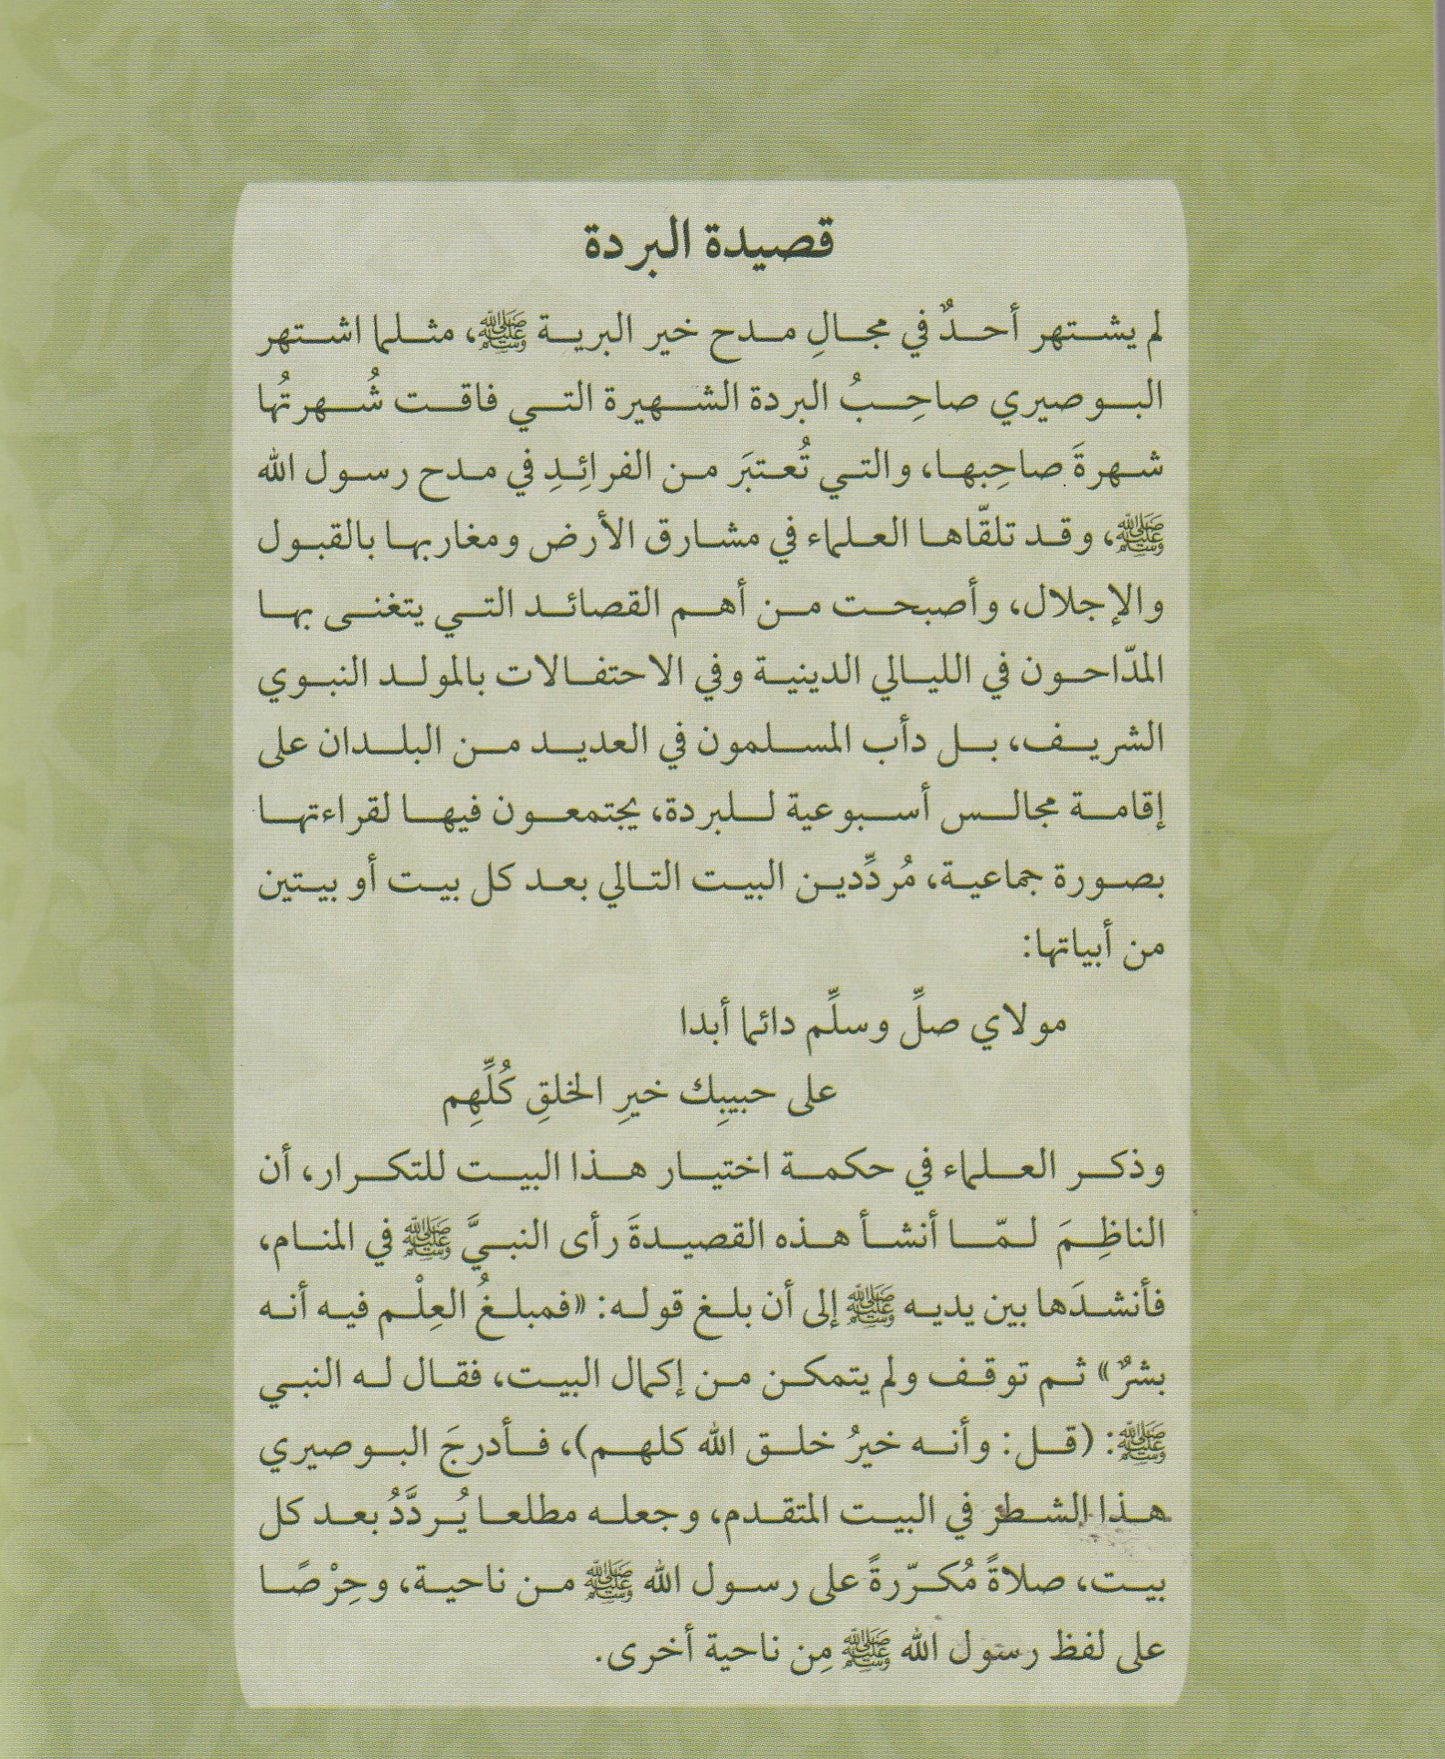 قصيدة البردة
لم يشتهر أحدٌ في مجالِ مدح خير البرية ﷺ، مثلما اشتهر
البوصيري صاحِبُ البردة الشهيرة التي فاقت شُهرتُها
شهرةَ صاحِبها، والتي تُعتبَر من الفرائِدِ في مدح رسول الله
ﷺ، وقد تلقّاها العلماء في مشارق الأرض ومغاربها بالقبول
والإجلال، وأصبحت من أهم القصائد التي يتغنى بها
المدّاحون في الليالي الدينية وفي الاحتفالات بالمولد النبوي
الشريف، بل دأب المسلمون في العديد من البلدان على
إقامة مجالس أسبوعية للبردة، يجتمعون فيها لقراءتها
بصورة جماعية، مُردِّدين البيت التالي بعد كل بيت أو بيتين
من أبياتها:
مولاي صلِّ وسلِّم دائما أبدا
على حبيبِك خيرِ الخلقِ كُلِّهِم
وذكر العلماء في حكمة اختيار هذا البيت للتكرار، أن
الناظِمَ لمّا أنشأ هذه القصيدةَ رأى النبيَّ ﷺ في المنام،
فأنشدَها بين يديه ﷺ إلى أن بلغ قوله: «فمبلغُ العِلْم فيه أنه
بشرٌ» ثم توقف ولم يتمكن من إكمال البيت، فقال له النبي
ﷺ: (قل: وأنه خيرُ خلق الله كلهم)، فأدرجَ البوصيري
هذا الشطر في البيت المتقدم، وجعله مطلعا يُردَّدُ بعد كل
بيت، صلاةً مُكرّرةً على رسول الله ﷺ من ناحية، وحِرْصًا
على لفظ رسول الله ﷺ مِن ناحية أخرى.